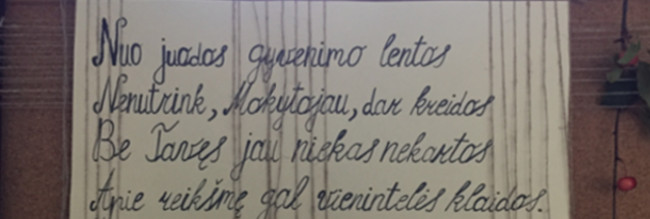 Nuo juodos gyvenimo lentos
Nenutrink, Mokytojau, dar kreidos
Be Tavęs jau niekas nekartos
Apie reikšmę gal vienintelės klaidos.